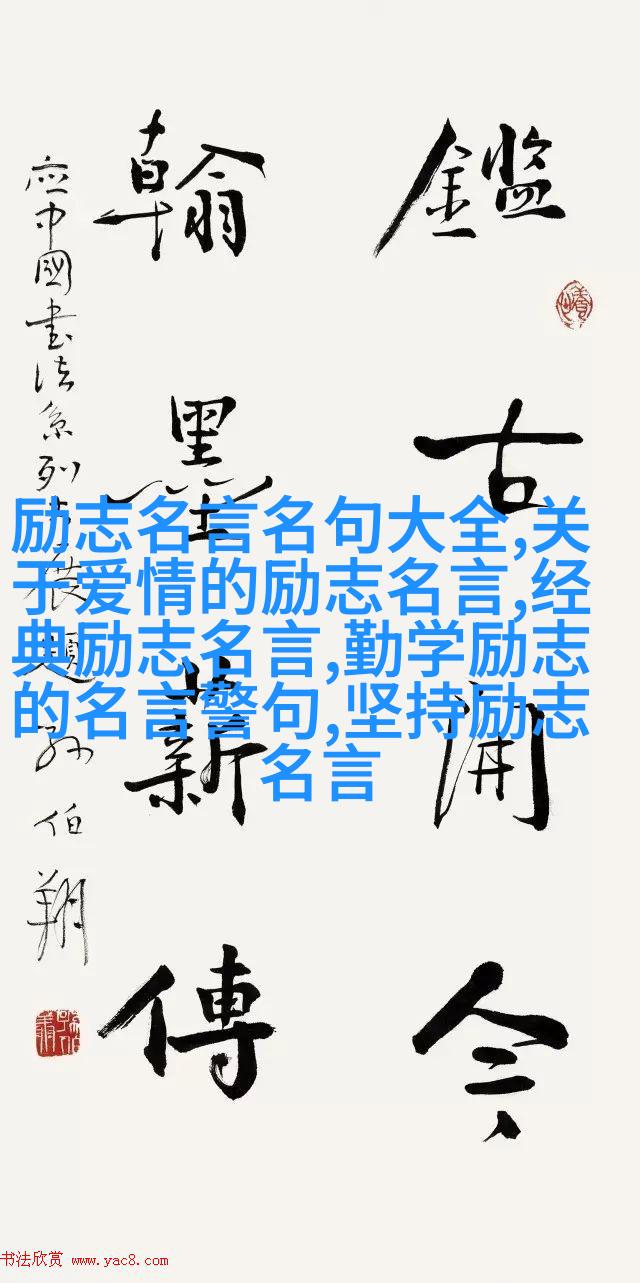 鑑古開今
翰墨薪傳
應中國書法系列大展題 孙伯翔
励志名言名句大全,关
于爱情的励志名言,经
典励志名言,勤学励志
的名言警句,坚持励志
名言
书法欣赏 www.yac8.com